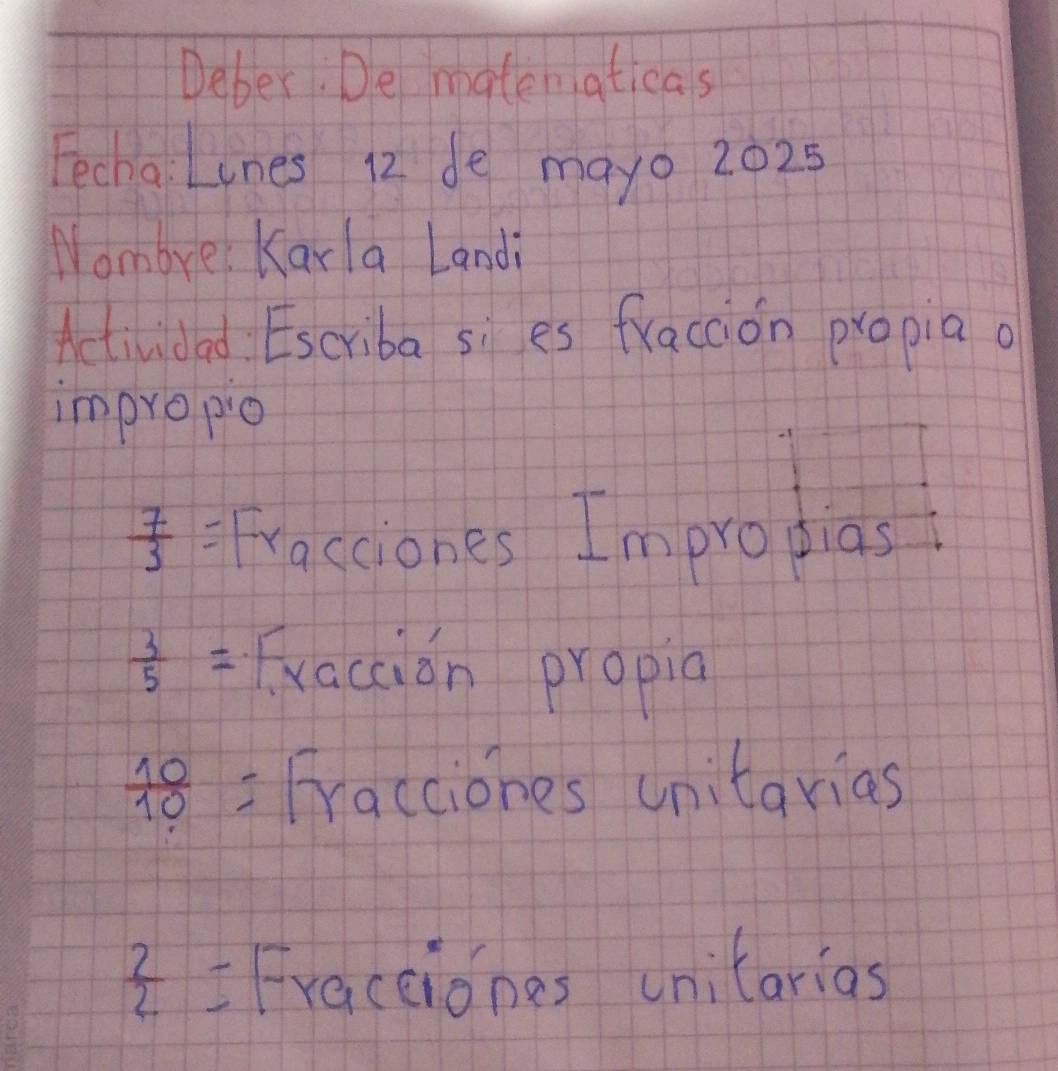 Deber: De matematicas
Fecha: Lunes 12 de mayo 2025
Nombre: Karla Landi
Actividad: Escriba si es fracción propia o
impropio
7/3 = Fracciones Impropias
3/5 = Fracción propia
10/10 = Fracciónes unitarías
2/2 = Fracciónes unitarías
marca